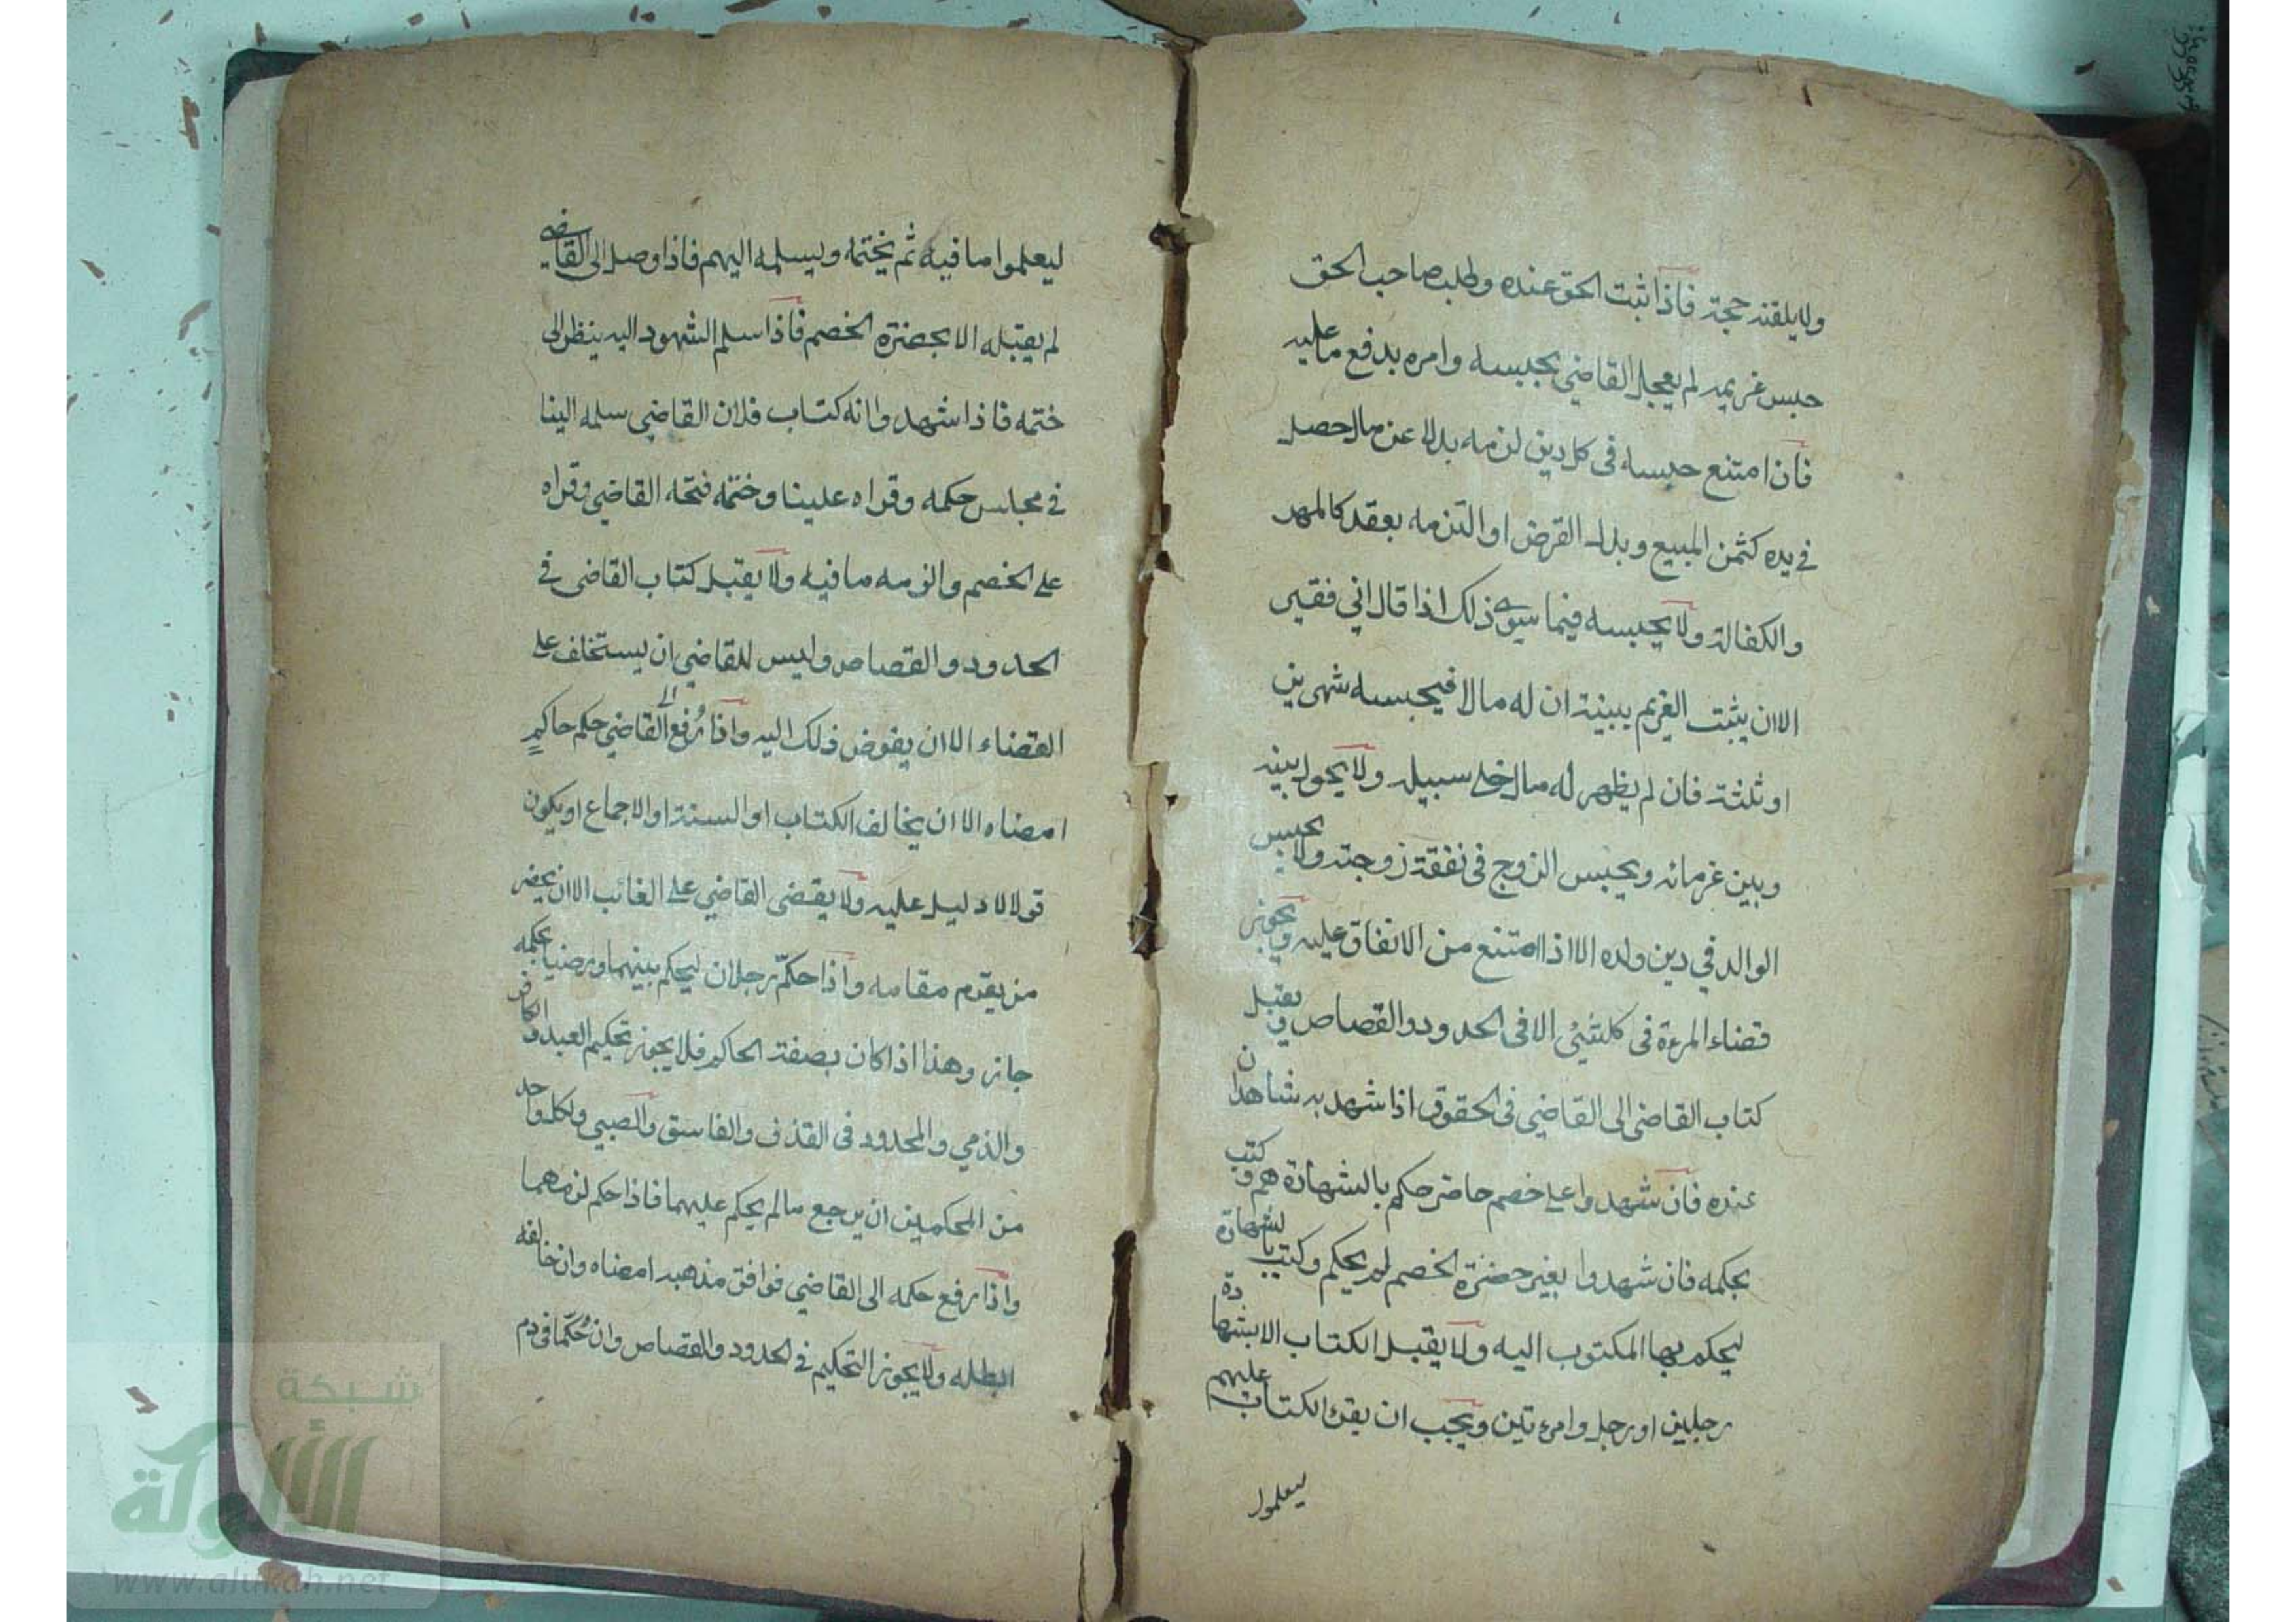 ولا يلقنه حجة فاذا ثبت الحق عنده وطلب صاحب الحق
حبس غريمه لم يعجل القاضي بحبسه وامره بدفع ما عليه
فان امتنع حبسه فى كل دين لزمه بدلا عن مال حصل
في يده كثمن المبيع وبدل القرض او التزمه بعقد كالمهر
والكفالة ولا يحبسه فيما سوى ذلك اذا قال اني فقير
الا ان يثبت الغريم ببينة ان له مالا فيحبسه شهرين
او ثلثة فان لم يظهر له مال خلى سبيله ولا يحول بينه
وبين غرمائه ويحبس الزوج فى نفقة زوجته ولا يحبس
الوالد في دين ولده الا اذا امتنع من الانفاق عليه ويجوز
قضاء المرءة فى كل شئ الا فى الحدود والقصاص ويقبل
كتاب القاضى الى القاضي فى الحقوق اذا شهد به شاهدان
عنده فان شهدوا على خصم حاضر حكم بالشهادة هم وكتب
بحكمه فان شهدوا بغير حضرة الخصم لم يحكم وكتب بالشهادة
ليحكم بها المكتوب اليه ولا يقبل الكتاب الا بشهادة
رجلين او رجل وامرءتين ويجب ان يقرء الكتاب عليهم
ليعلموا
ليعلموا ما فيه ثم يختمه ويسلمه اليهم فاذا وصل الى القاضي
لم يقبله الا بحضرة الخصم فاذا سلم الشهود اليه ينظر الى
ختمه فاذا شهدوا انه كتاب فلان القاضي سلمه الينا
في مجلس حكمه وقراه علينا وختمه فتحه القاضي وقراه
على الخصم والزمه ما فيه ولا يقبل كتاب القاضى في
الحدود والقصاص وليس للقاضي ان يستخلف على
القضاء الا ان يفوض ذلك اليه واذا رُفع الى القاضي حكم حاكمٍ
امضاه الا ان يخالف الكتاب او السنة او الاجماع او يكون
قولا لا دليل عليه ولا يقضى القاضي على الغائب الا ان يحضر
من يقوم مقامه واذا حكمّ رجلان ليحكم بينهما ورضيا بحكمه
جاز وهذا اذا كان بصفة الحاكم فلا يجوز تحكيم العبد والكافر
والذمي والمحدود فى القذف والفاسق والصبي ولكل واحد
من المحكمين ان يرجع ما لم يحكم عليهما فاذا حكم لزمهما
واذا رفع حكمه الى القاضي فوافق مذهبه امضاه وان خالفه
ابطله ولا يجوز التحكيم في الحدود والقصاص وان حُكّما فى دم
شبكة
الألوكة
www.alukah.net